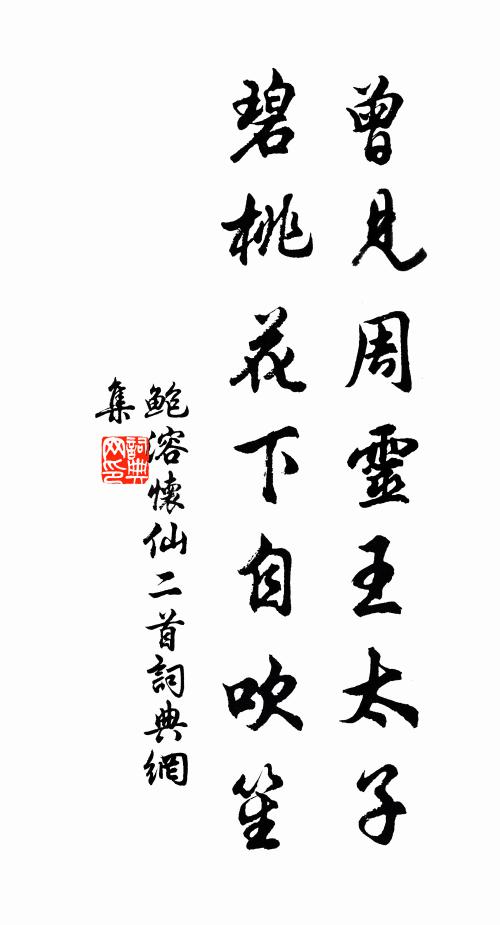 曾見周靈王太子
碧桃花下自吹笙
鲍溶懷仙二首詞典網
集
詞典网印